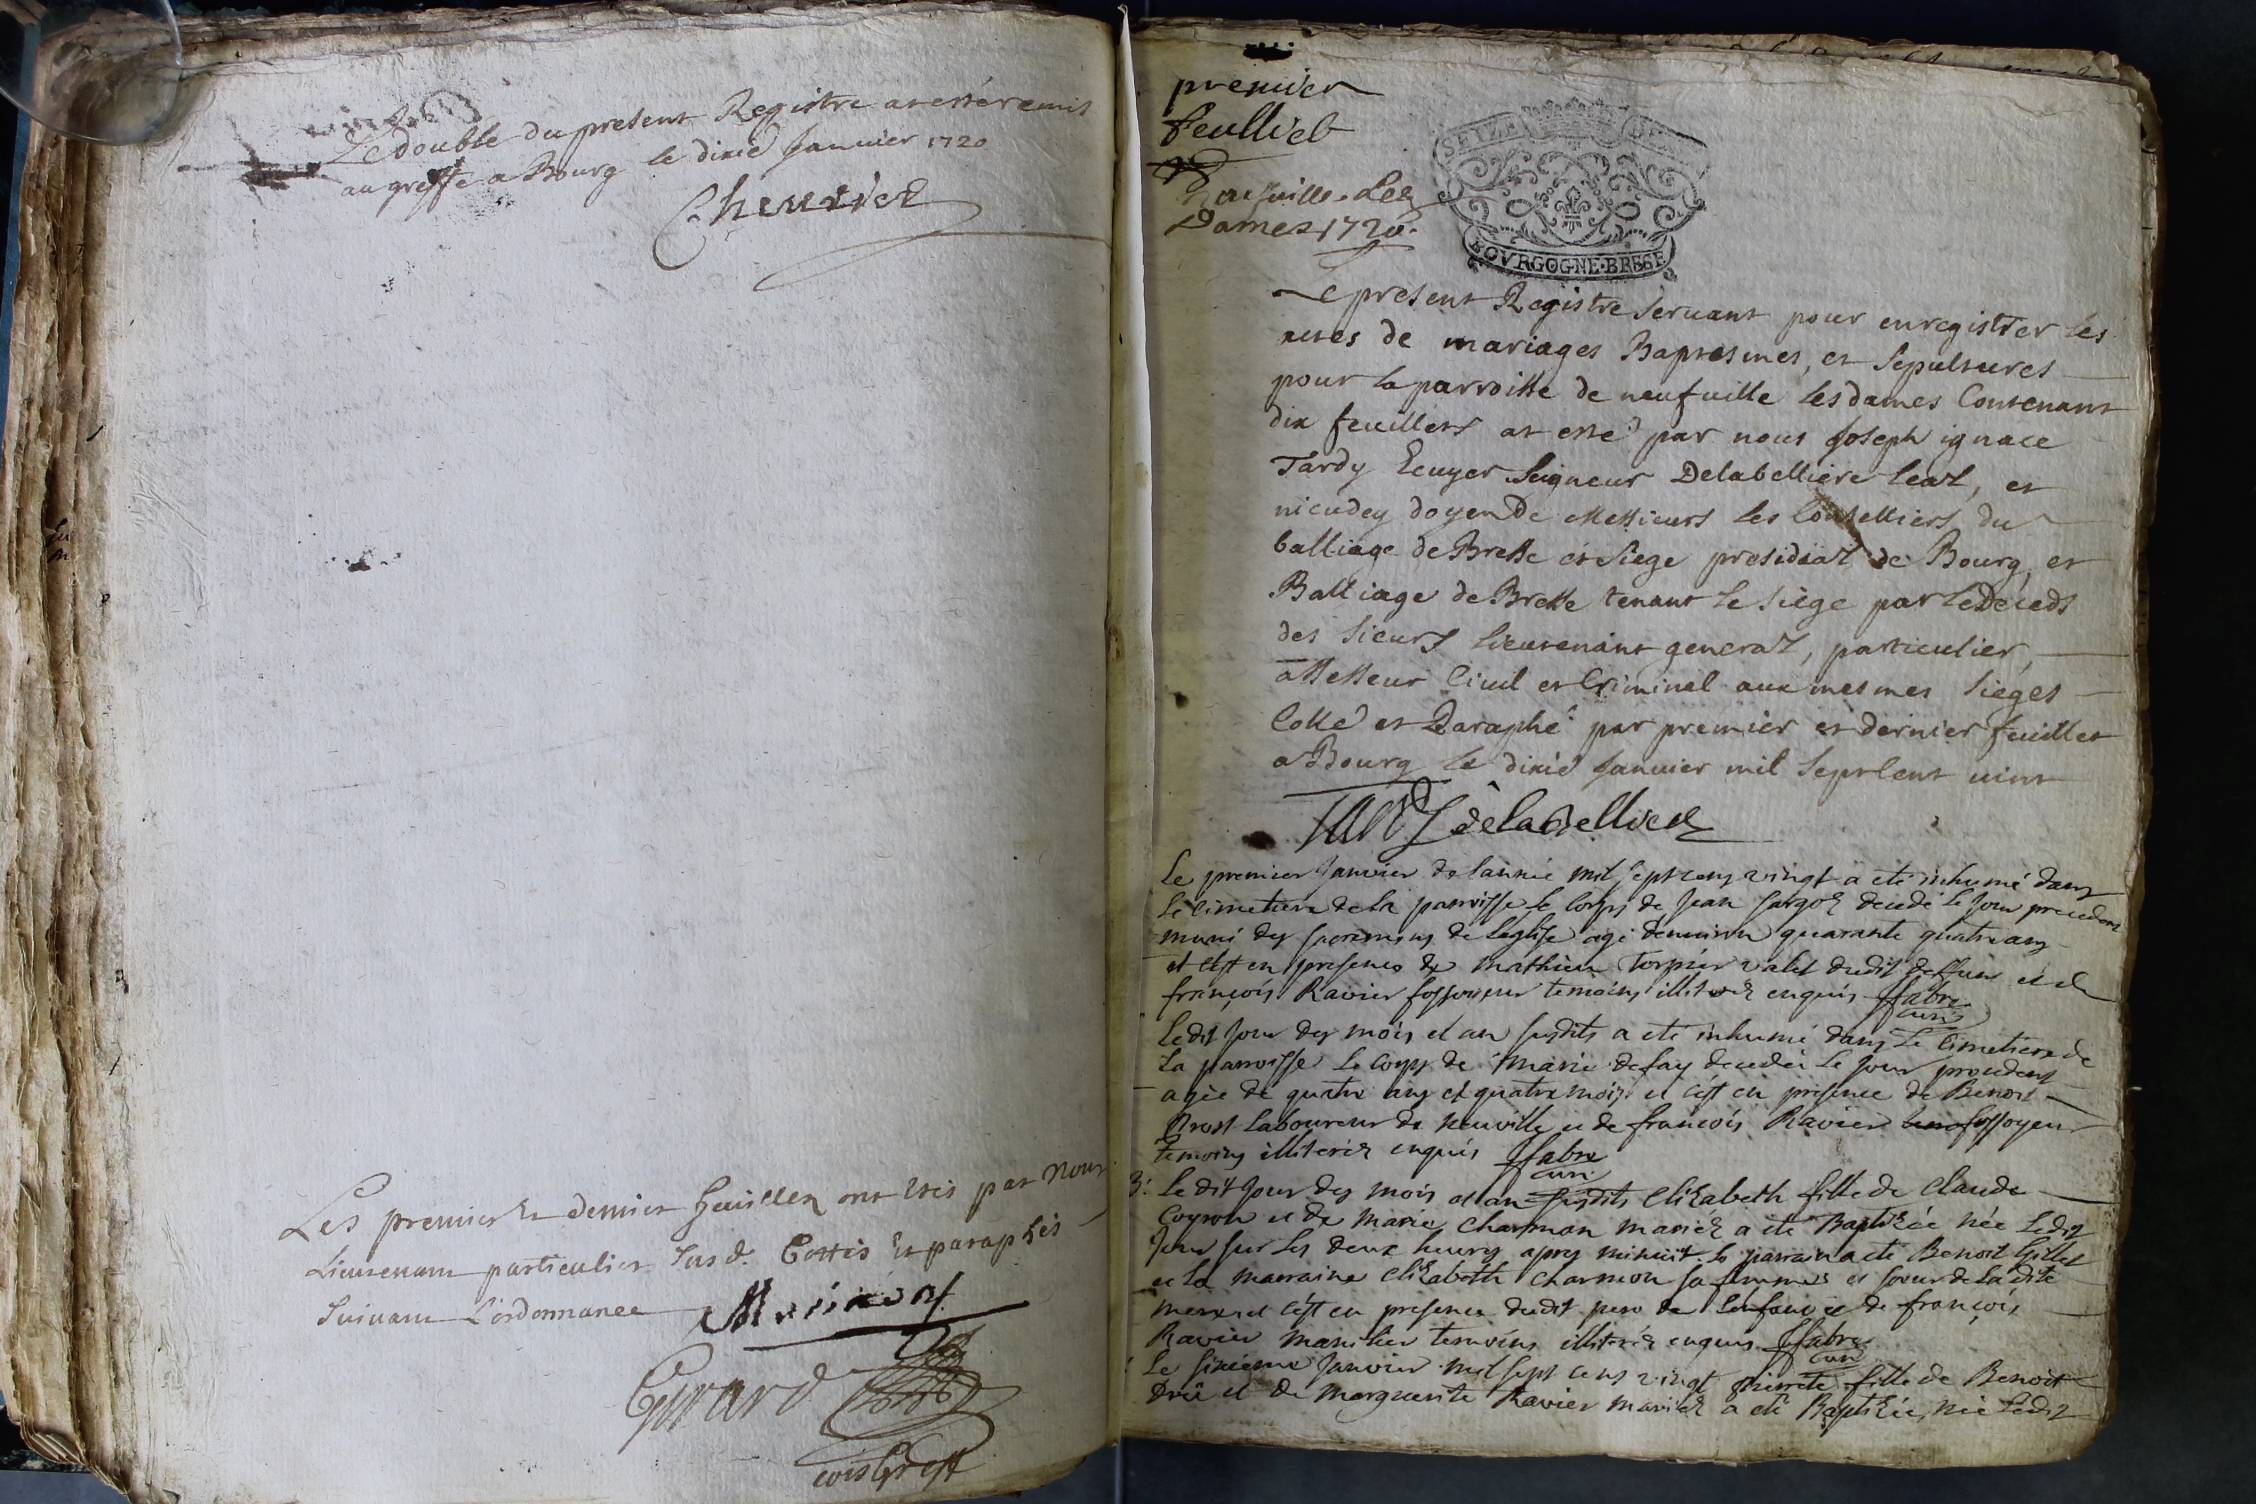 Le double du present Registre at esté remis
au greffe a Bourg le dixie Januier 1720
Cheurier
Les premier et dernier feuillez ont etés par nous
Lieutenant particulier susd. Cottés et paraphés
suivant L'ordonnance
Girard
premier
feulliet
neufuille Les
Dames 1720.
SEIZE DEN
BOVRGOGNE·BRESSE
Le present Registre seruant pour enregistrer les
actes de mariages Baptesmes, et sepultures
pour la parroisse de neufuille les dames Contenant
dix feuillets at esté par nous Joseph ignace
Tardy Ecuyer Seigneur Delabelliere leaz, et
nicudey doyen De Messieurs les Conselliers du
balliage de Bresse et siege presidial de Bourg, et
Balliage de Bresse tenant le siege par le Deceds
des sieurs lieutenant general, particulier,
assesseur Ciuil et Criminel aux mesmes sieges
Cotté et Paraphé par premier et dernier feuillet
a Bourg le dixié Januier mil sept Cent uint
Tardy delabelliere
Le premier Janvier de l'année mil sept cens vingt a eté inhumé dans
le cimetiere de la parroisse le corps de Jean decedé le jour precedent
muni des sacremens de l'eglise agé d'environ quarante quatre ans
et c'est en presence de mathieu valet dudit deffunt et de
françois Ravier fossoyeur temoins illiterez enquis ffabre
curé
Ledit jour des mois et an susdits a eté inhumé dans le cimetiere de
la parroisse le corps de marie defay decedée le jour precedent
agée de quatre ans et quatre mois et c'est en presence de Benoit
Prost Laboureur de neuville et de françois Ravier fossoyeur
temoins illiterez enquis ffabre
curé
3. Le dit jour des mois et an susdits Elizabeth fille de Claude
Coyron et de Marie Charmon mariéz a eté Baptizée née Ledit
jour sur les deux heures apres minuit. le parrain a eté Benoit
et la marraine Elizabeth Charmon sa femme et soeur de la dite
mere et c'est en presence dudit pere de l'enfant et de françois
Ravier manilier temoins illiteréz enquis ffabre
curé
Le sixieme Janvier mil sept cens vingt pierrete fille de Benoit
Druë et de marguerite Ravier mariéz a eté Baptizée, née Ledit